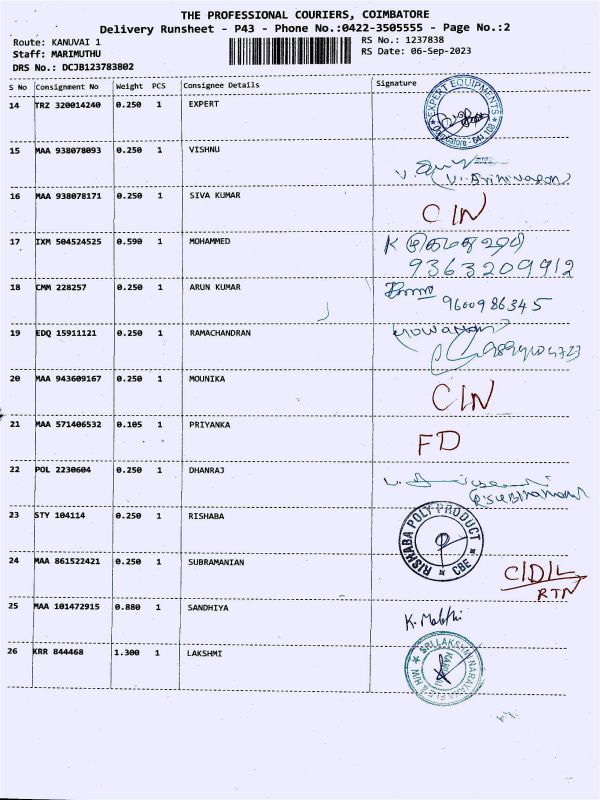 THE PROFESSIONAL COURIERS, COIMBATORE
Delivery Runsheet - P43 - Phone No.:0422-3505555 - Page No.:2
Route: KANUVAI 1 RS No.: 1237838
Staff: MARIMUTHU RS Date: 06-Sep-2023
DRS No.: DCJB123783802
S No Consignment No Weight PCS Consignee Details Signature
14 TRZ 320014240 0.250 1 EXPERT EXPERT EQUIPMENTS
15 MAA 938078093 0.250 1 VISHNU
16 MAA 938078171 0.250 1 SIVA KUMAR C/N
17 IXM 504524525 0.590 1 MOHAMMED K
9363209912
18 CMM 228257 0.250 1 ARUN KUMAR 9600986345
19 EDQ 15911121 0.250 1 RAMACHANDRAN
20 MAA 943609167 0.250 1 MOUNIKA C/N
21 MAA 571406532 0.105 1 PRIYANKA FD
22 POL 2230604 0.250 1 DHANRAJ
23 STY 104114 0.250 1 RISHABA RISHABA POLY PRODUCT CBE
24 MAA 861522421 0.250 1 SUBRAMANIAN C/D/L
RTN
25 MAA 101472915 0.880 1 SANDHIYA
26 KRR 844468 1.300 1 LAKSHMI